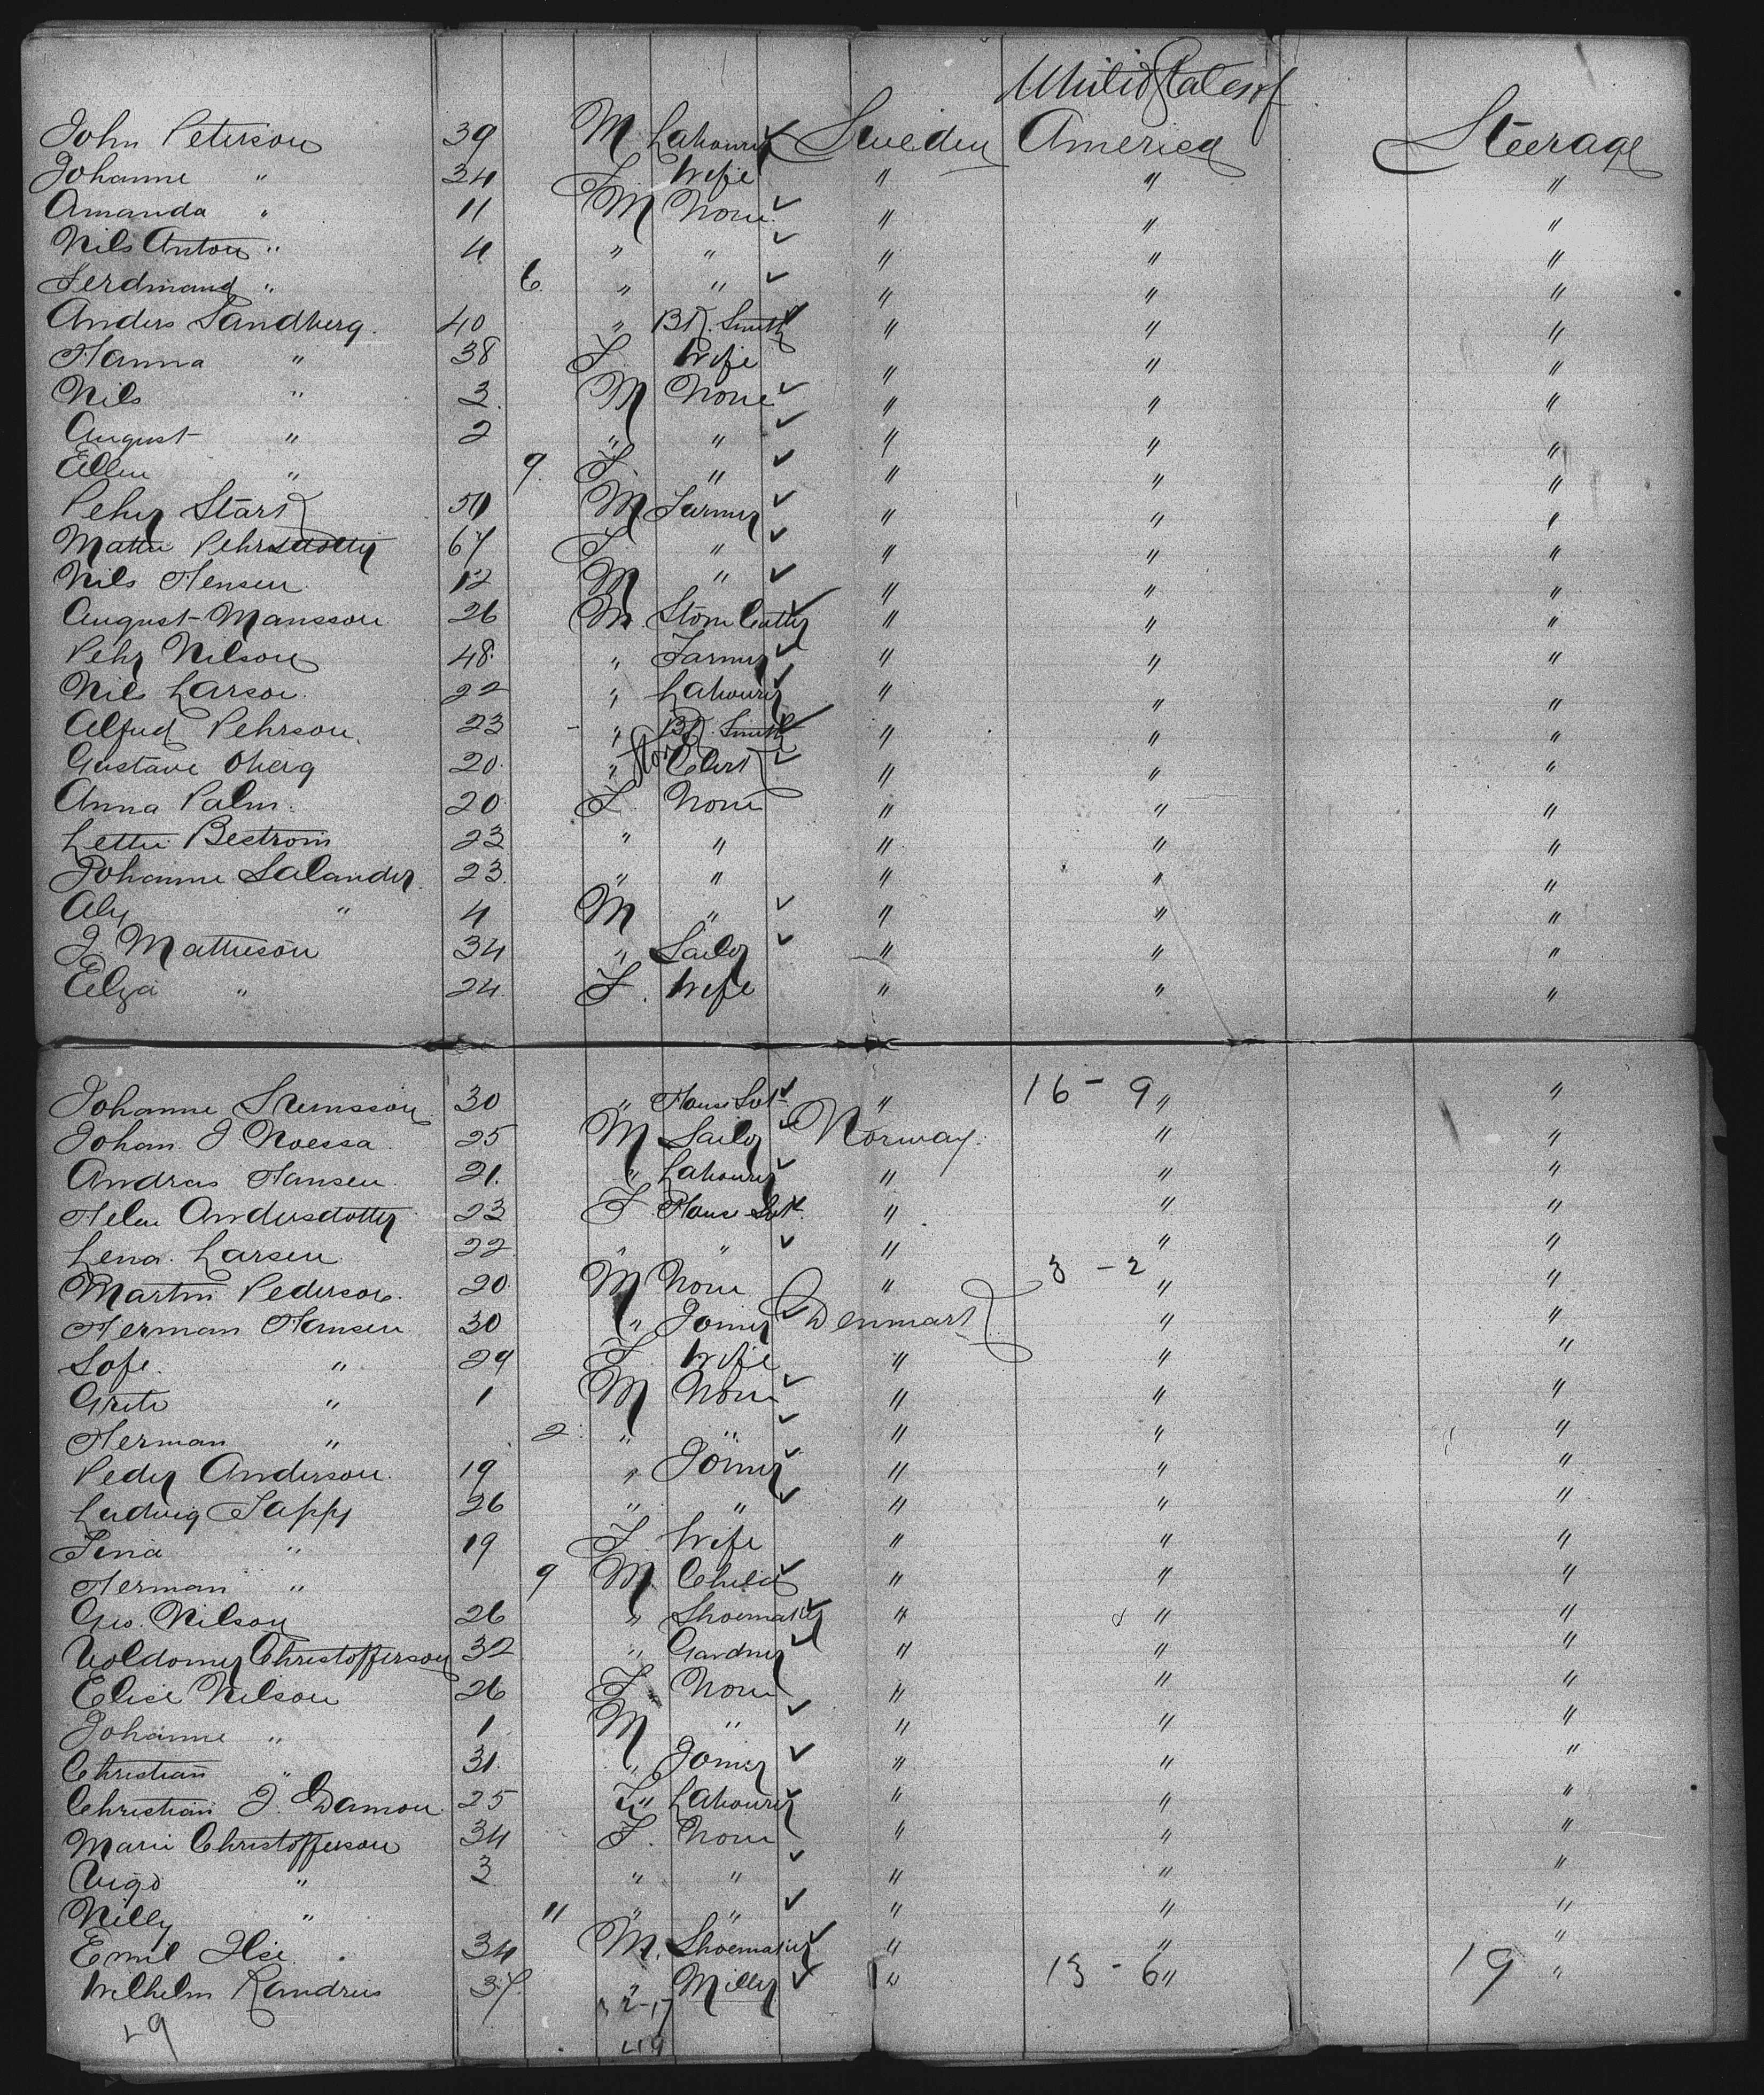 United States of
John Peterson 39 M Labourer ✓ Sweden America Steerage
Johanne " 34 F. Wife " " "
Amanda " 11 M None ✓ " " "
Nils Anton " 4 " " ✓ " " "
Ferdinand " 6 " " ✓ " " "
Anders Sandberg 40 " Bk. Smith ✓ " " "
Hanna " 38 F Wife " " "
Nils " 3 M None ✓ " " "
August " 2 " " ✓ " " "
Ellen " 9 F. " ✓ " " "
Pehr Stark M Farmer ✓ " " "
Mattie Pehrsdotter 67 F " ✓ " " "
Nils Hensen 12 M " ✓ " " "
August Mansson 26 M. Stone Cutter ✓ " " "
Pehr Nilson 48 " Farmer ✓ " " "
Nils Larson 22 " Labourer ✓ " " "
Alfred Pehrson 23 " Bk. Smith ✓ " " "
Gustave Oberg 20 " Store Clerk ✓ " " "
Anna Palm 20 F. None " " "
Lettie Bestrom 23 " " " " "
Johanne Salander 23 " " " " "
Aly " 4 M " ✓ " " "
J. Mattieson 34 " Sailor ✓ " " "
Elza " 24 F. Wife " " "
Johanne 30 " House Svt ✓ " 16 - 9 " "
Johan J Noessa 25 M Sailor ✓ Norway " "
Andras Hansen 21 " Labourer ✓ " " "
Helen Andersdotter 23 F House Svt ✓ " " "
Lena Larsen 22 " " ✓ " " "
Martin Pederson 20 M None " 3 - 2 " "
Herman Hansen 30 " Joiner ✓ Denmark " "
Sofe " 29 F. Wife " " "
Grete " 1 M None ✓ " " "
Herman " 2 " " ✓ " " "
Peder Anderson 19 " Joiner ✓ " " "
Ludvig Sappy 26 " " ✓ " " "
Sina " 19 F. Wife " " "
Herman " 9 M. Child ✓ " " "
Geo. Nilson 26 " Shoemaker ✓ " " "
Voldomer Christofferson 32 " Gardner ✓ " " "
Elise Nilson 26 F None " " "
Johanne " 1 M " ✓ " " "
Christian " 31 " Joiner ✓ " " "
Christian J. Damon 25 " Labourer ✓ " " "
Marie Christofferson 34 F. None " " "
Vigo " 3 " " ✓ " " "
Nilly " 11 " " ✓ " " "
Emil Ilse 34 M. Shoemaker ✓ " " "
Wilhelm Randrus 37 " Miller ✓ " 13 - 6 " 19 "
32-17
49